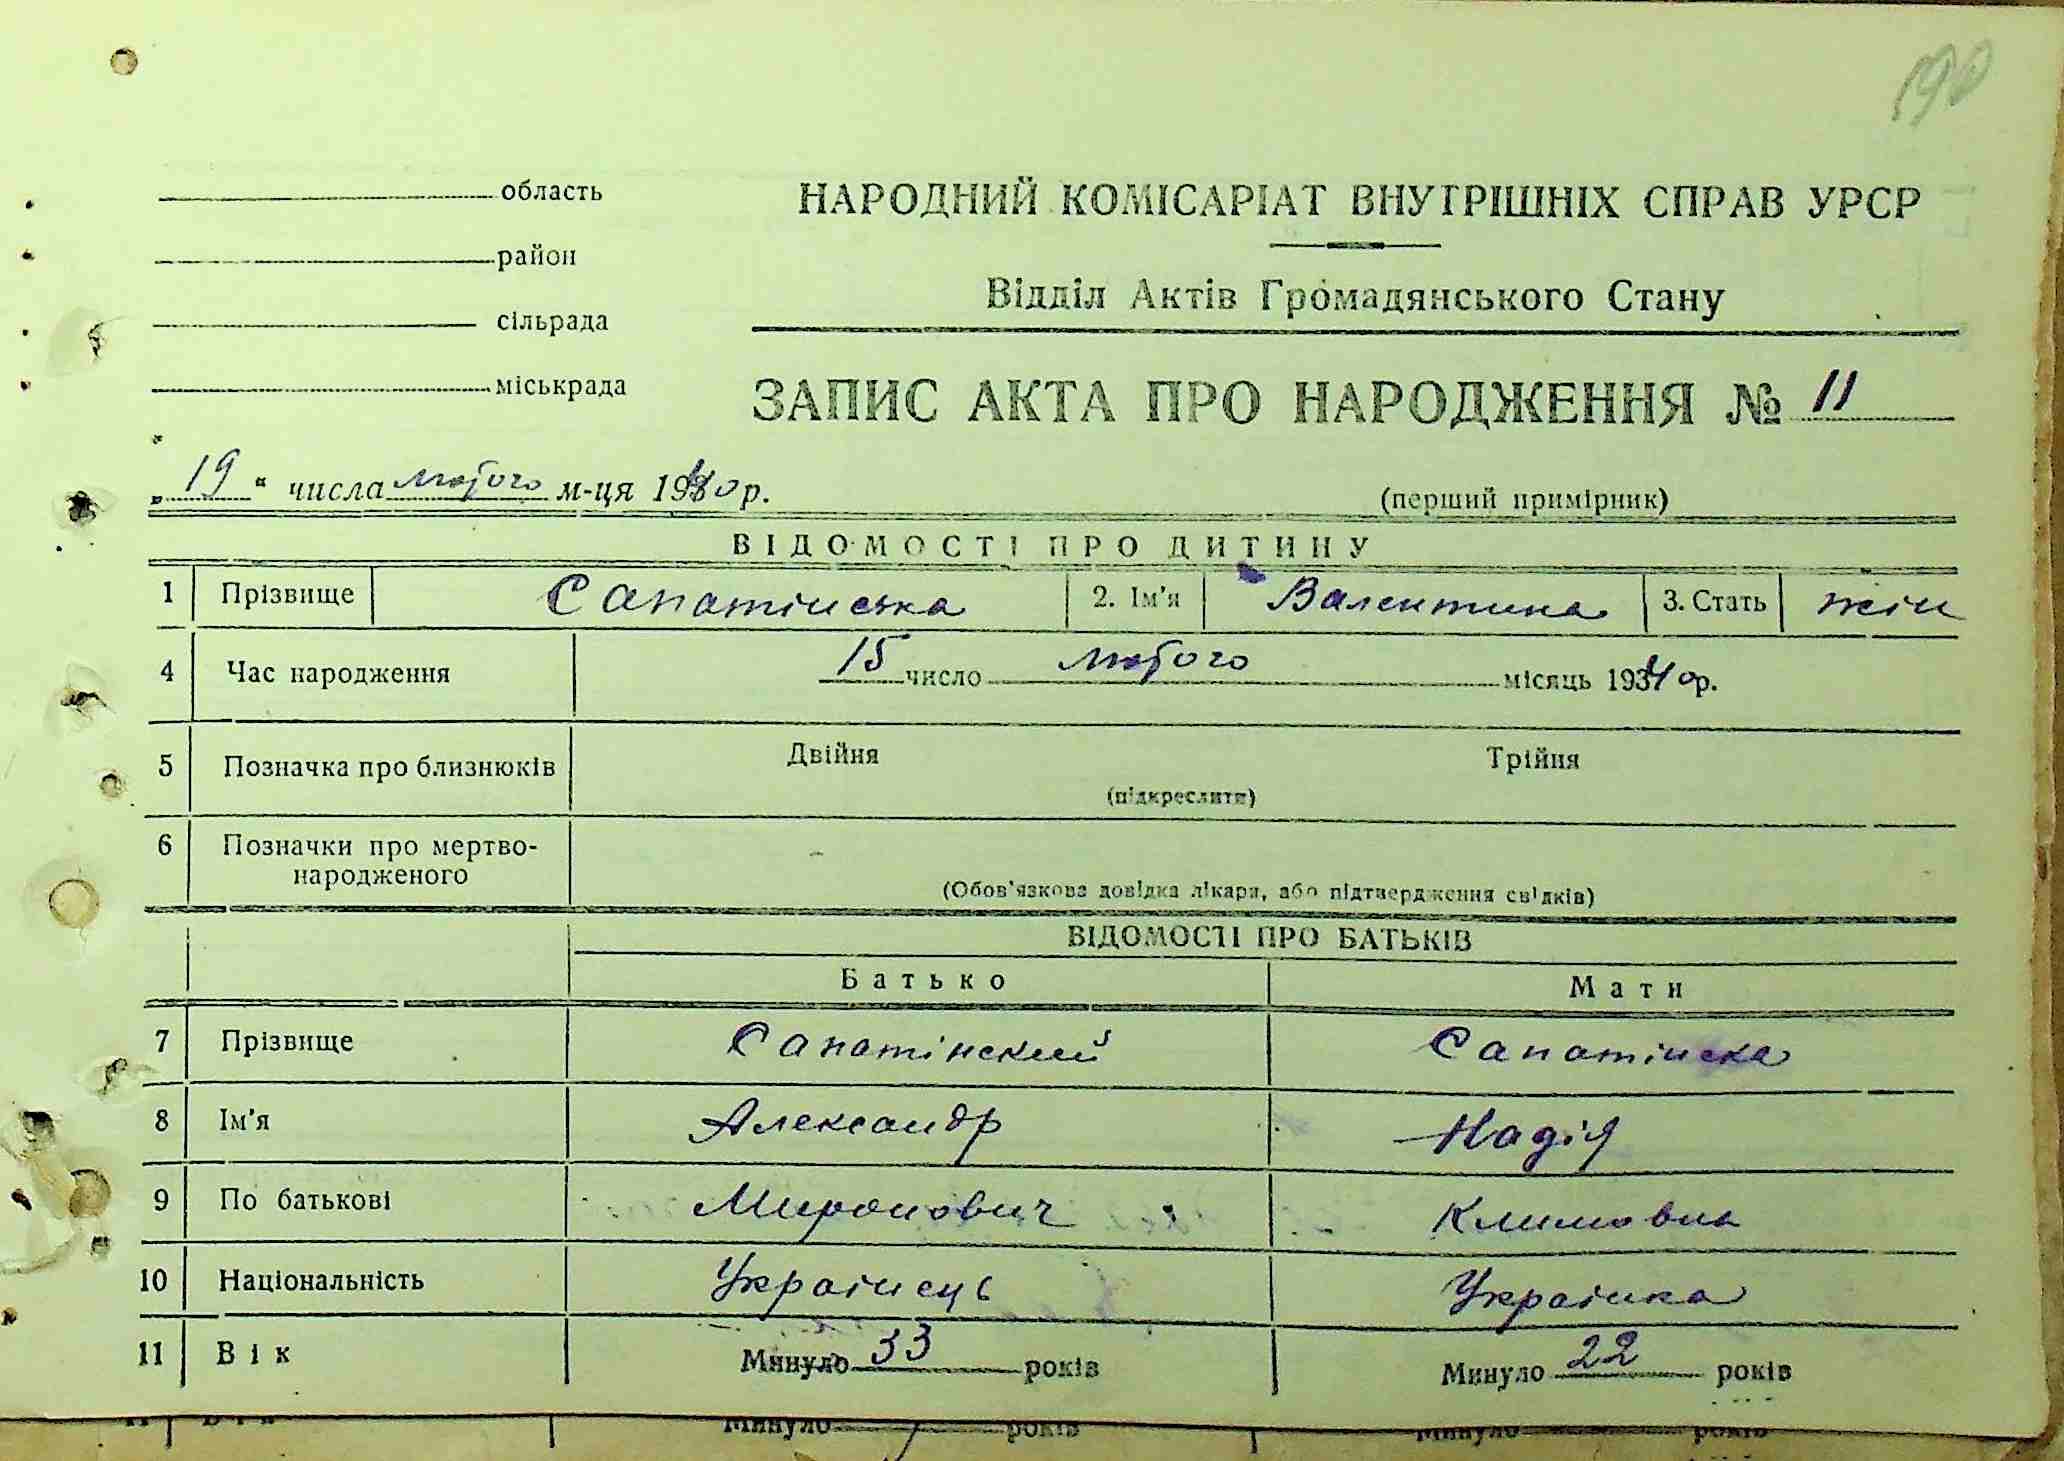 190
область
НАРОДНИЙ КОМІСАРІАТ ВНУТРІШНІХ СПРАВ УРСР
район
Відділ Актів Громадянського Стану
сільрада
міськрада
ЗАПИС АКТА ПРО НАРОДЖЕННЯ № 11
„19“ числа лютого м-ця 1940 р.
(перший примірник)
ВІДОМОСТІ ПРО ДИТИНУ
1 Прізвище Сапатінська 2. Ім'я Валентина 3. Стать жін
4 Час народження 15 число лютого місяць 1940р.
5 Позначка про близнюків Двійня Трійня
(підкреслити)
6 Позначки про мертво-
народженого
(Обов'язкова довідка лікаря, або підтвердження свідків)
ВІДОМОСТІ ПРО БАТЬКІВ
Батько Мати
7 Прізвище Сапатінский Сапатінска
8 Ім'я Александр Надія
9 По батькові Миронович Климовна
10 Національність Украінець Украінка
11 Вік Минуло 33 років Минуло 22 років
11 Вік Минуло років Минуло років